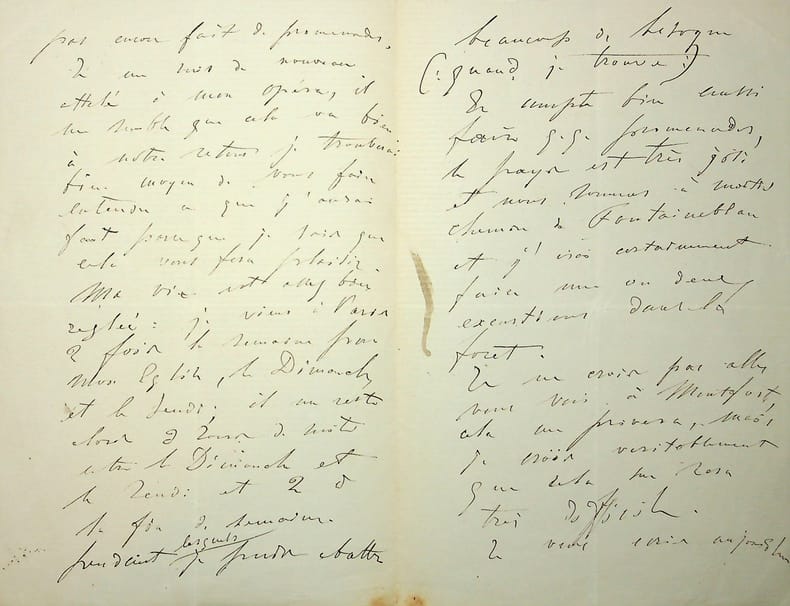 pas encore fait de promenades,
Je me suis de nouveau
attelé à mon opéra, il
me semble que cela va bien
à notre retour je trouverai
bien moyen de vous faire
entendre ce que j'aurai
fait parce que je sais que
cela vous fera plaisir.
Ma vie est assez bien
réglée : je viens à Paris
2 fois la semaine pour
mon Eglise, le Dimanche
et le Jeudi; il me reste
alors 3 jours de suite
entre le Dimanche et
le Jeudi et 2 à
la fin de semaine
pendant lesquels je puis abattre
beaucoup de besogne
(: quand je trouve :)
Je compte bien aussi
faire qq promenades,
le pays est très joli
et nous sommes à moitié
chemin de Fontainebleau
et j'irai certainement
faire une ou deux
excursions dans la
foret.
Je ne crois pas aller
vous voir à Montfort,
cela me privera, mais
je crois veritablement
que cela me sera
très difficile.
Je vous ecris aujourd'hui